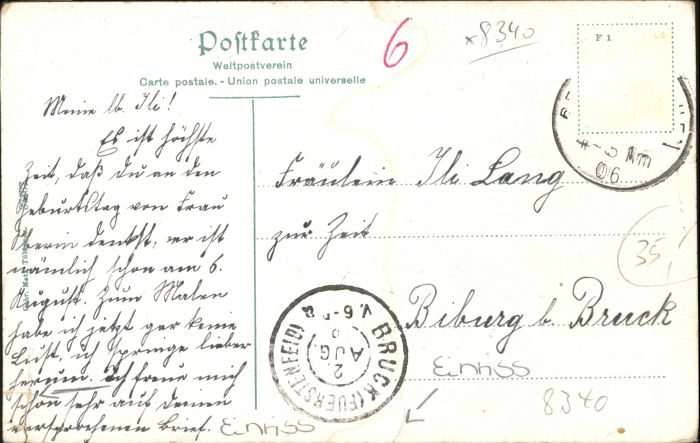 Postkarte
Weltpostverein
Carte postale. - Union postale universelle
6
x8340
F 1
Meine lb. Ili!
Es ist höchste
Zeit, daß du an den
Geburtstag von Frau
Oberin denkst, er ist
nämlich schon am 6.
August. Zum Malen
habe ich jetzt gar keine
Lust, ich springe lieber
herum. Ich freue mich
schon sehr auf deinen
versprochenen Brief.
Fräulein Ili Lang
zur Zeit
Biburg b. Bruck
06
35,
BRUCK (FUERSTENFELD)
2.
AUG
Einriss
Einriss
8340